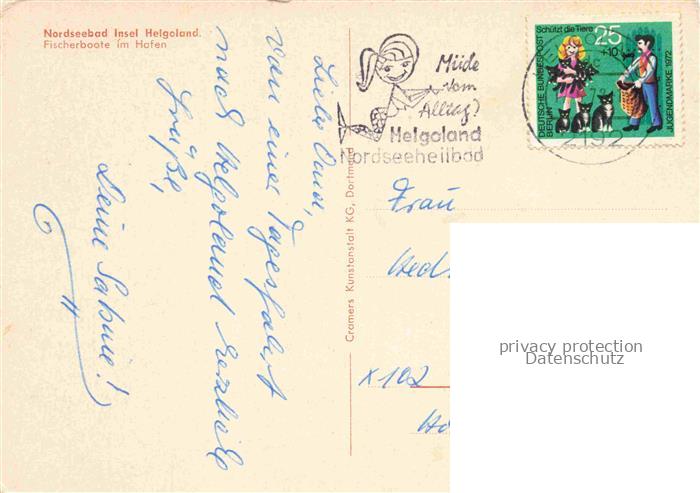 Nordseebad Insel Helgoland.
Fischerboote im Hafen
Liebe Oma,
von einer Tagesfahrt
nach Helgoland herzliche
Grüße,
Deine Sabine!
Cramers Kunstanstalt KG, Dortmund
Müde
vom
Alltag?
Helgoland
Nordseeheilbad
Schützt die Tiere
25
+10
DEUTSCHE BUNDESPOST
BERLIN
JUGENDMARKE 1972
2192
Frau
Hed
X 102
privacy protection
Datenschutz